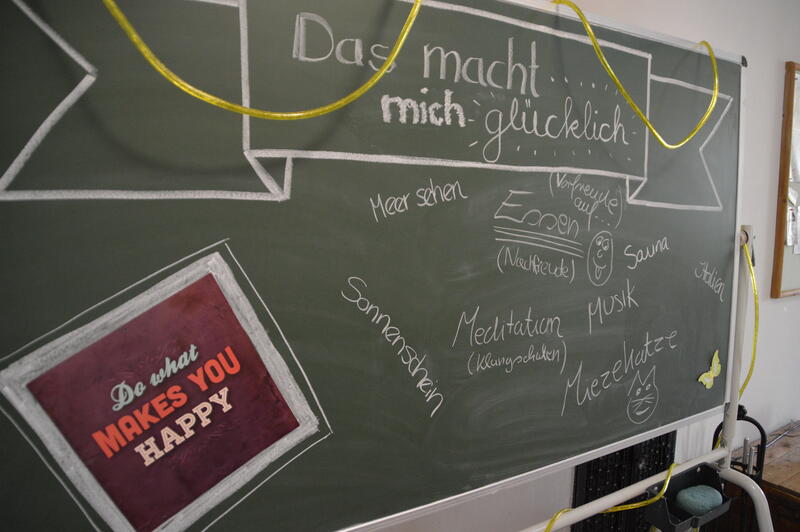 Das macht.....
mich glücklich
Meer sehen
(Vorfreude)
auf...
Essen
(Nachfreude)
Sauna
Italien
Sonnenschein
Musik
Meditation
(Klangschalen)
Miezekatze
Do what
MAKES YOU
HAPPY